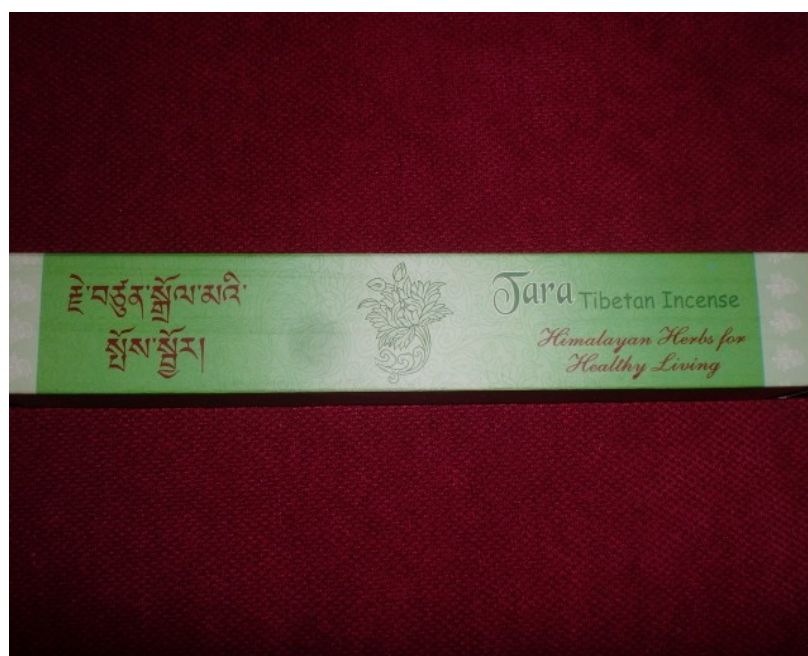 རྗེ་བཙུན་སྒྲོལ་མའི་
སྤོས་སྦྱོར།
Tara Tibetan Incense
Himalayan Herbs for
Healthy Living